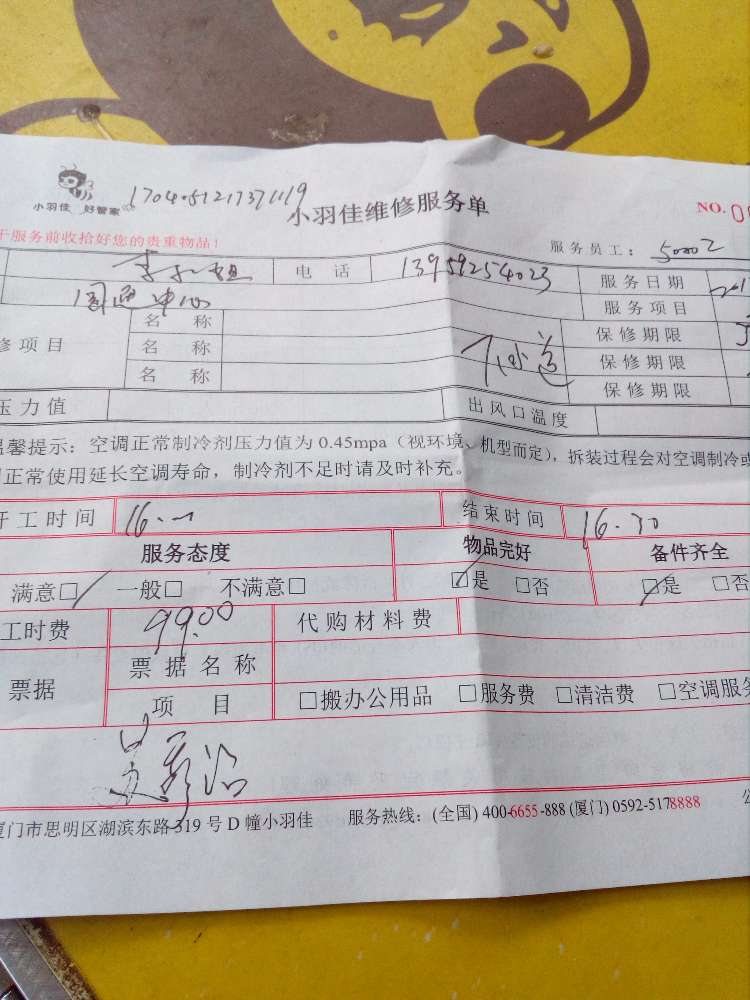 小羽佳 好管家 1704051217371119
小羽佳维修服务单
NO. 0
于服务前收拾好您的贵重物品！
服务员工：
电 话 13959254023 服务日期
圆通中心 服务项目
名 称 保修期限
修项目 名 称 保修期限
名 称 保修期限
压力值 出风口温度
温馨提示：空调正常制冷剂压力值为 0.45mpa（视环境、机型而定），拆装过程会对空调制冷或
正常使用延长空调寿命，制冷剂不足时请及时补充。
开工时间 16. 结束时间 16.30
服务态度 物品完好 备件齐全
满意□ 一般□ 不满意□ □是 □否 □是 □否
工时费 99.00 代购材料费
票据 票据名称
项 目 □搬办公用品 □服务费 □清洁费 □空调服务
厦门市思明区湖滨东路 319 号 D 幢小羽佳 服务热线：(全国) 400-6655-888 (厦门) 0592-5178888